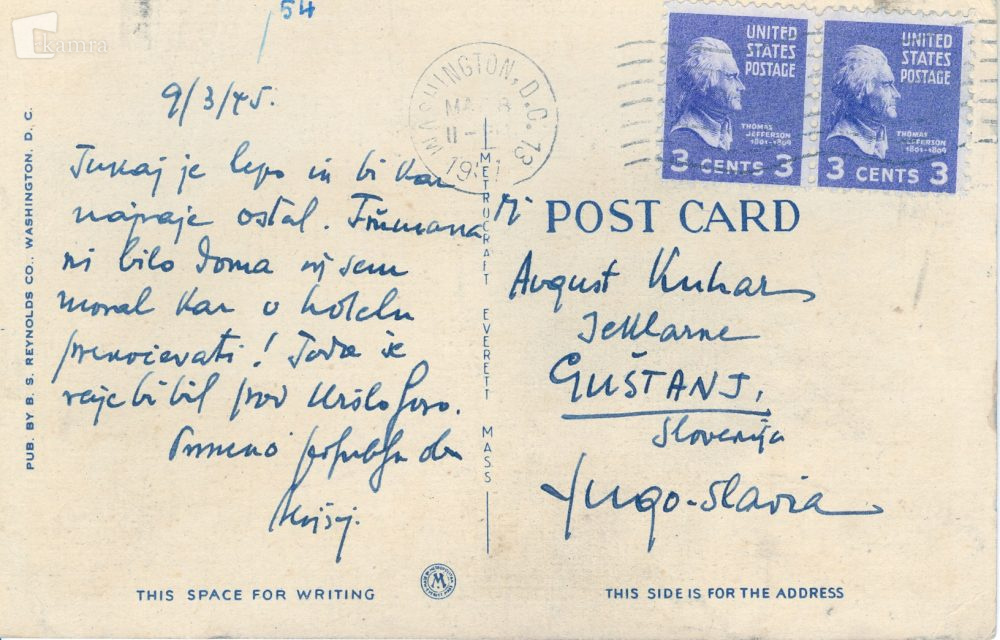 kamra
54
9/3/45.
Tukaj je lepo in bi kar
najraje ostal. Trumana
ni bilo doma nj sem
moral kar v hotelu
prenočevati! Toda še
raje bi bil pod Uršlo Goro.
WASHINGTON, D.C. 13
UNITED
STATES
POSTAGE
THOMAS
JEFFERSON
1801-1809
3 CENTS 3
UNITED
STATES
POSTAGE
THOMAS
JEFFERSON
1801-1809
3 CENTS 3
POST CARD
August Kuhar
Jeklarne
GUŠTANJ.
Slovenija
Yugo-slavia
PUB. BY B. S. REYNOLDS CO., WASHINGTON, D. C.
METROCRAFT EVERETT MASS
THIS SPACE FOR WRITING
THIS SIDE IS FOR THE ADDRESS